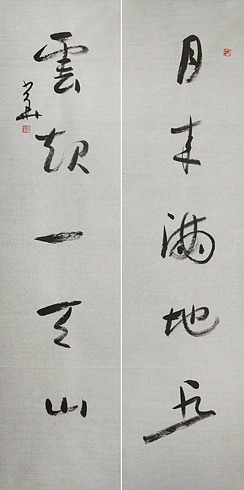 月來滿地水
雲起一天山